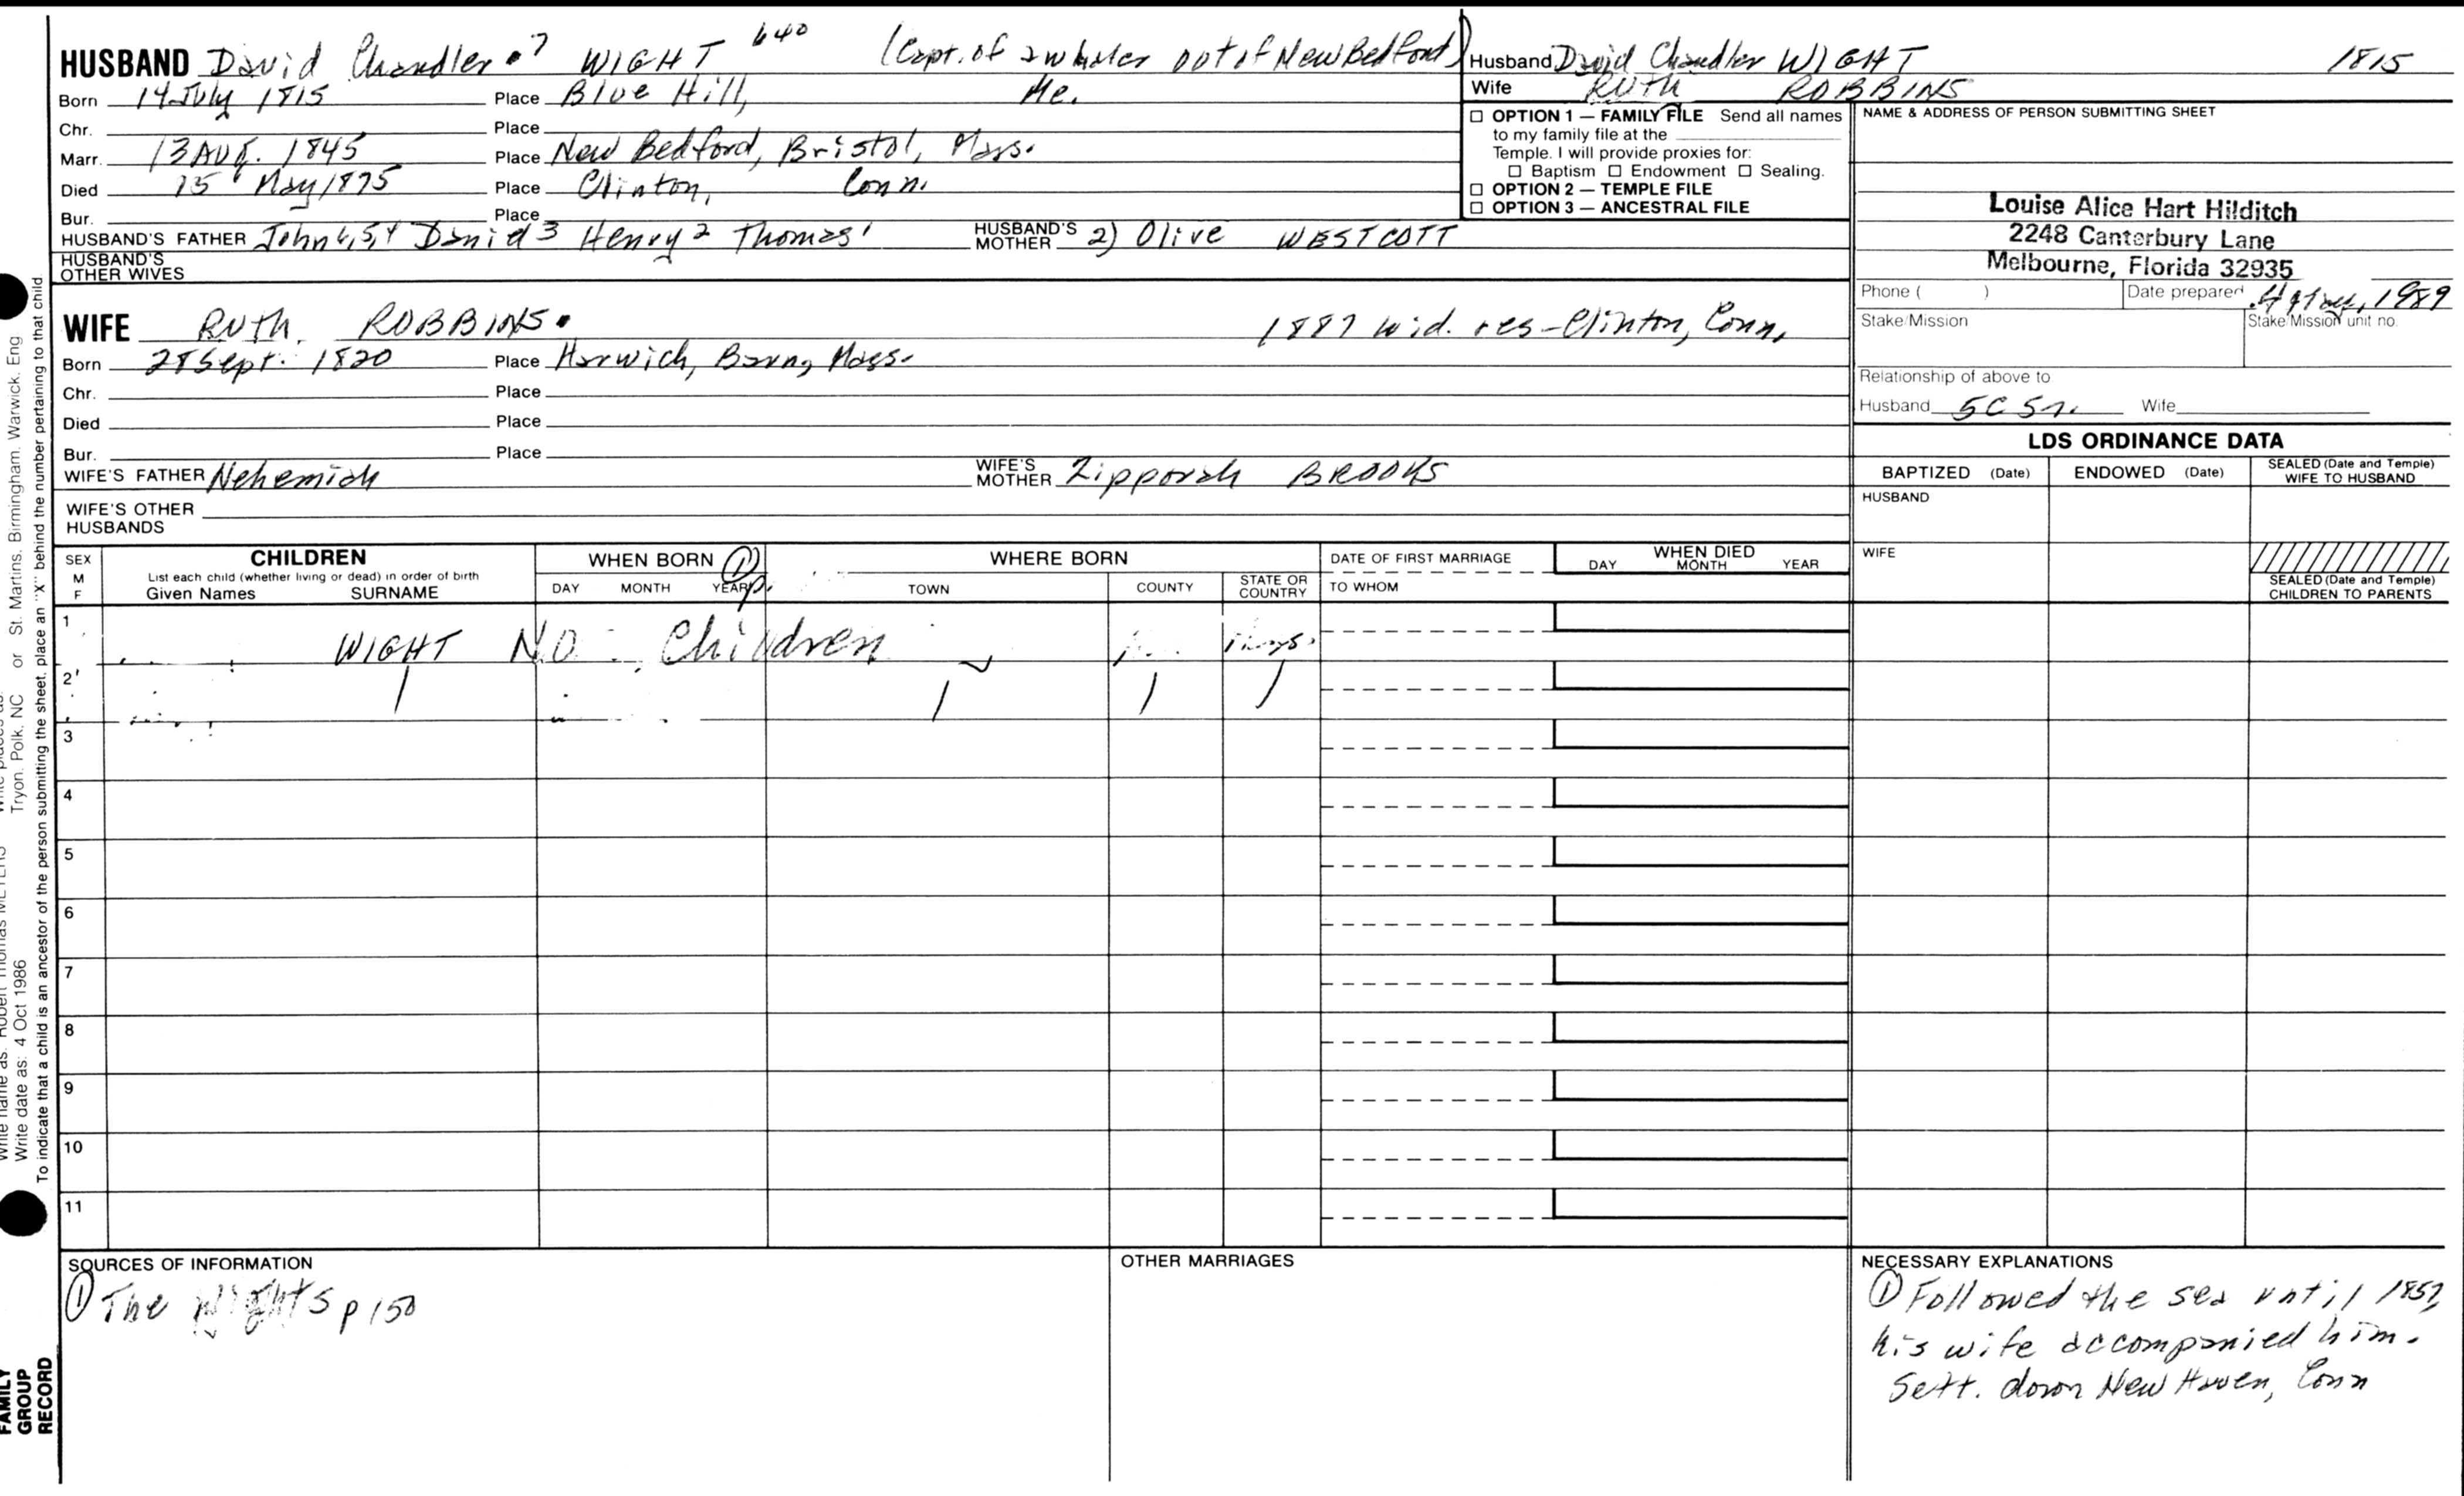 HUSBAND David Chandler 7 WIGHT 640 (Capt. of a whaler out of New Bedford)
Born 14 July 1815 Place Blue Hill, Me.
Chr. Place
Marr. 13 Aug. 1845 Place New Bedford, Bristol, Mass.
Died 15 May 1875 Place Clinton, Conn.
Bur. Place
HUSBAND'S FATHER John 6,5,4 Daniel 3 Henry 2 Thomas 1 HUSBAND'S MOTHER 2) Olive WESTCOTT
HUSBAND'S OTHER WIVES
WIFE Ruth ROBBINS. 1887 wid. res-Clinton, Conn.
Born 28 Sept. 1820 Place Harwich, Barn, Mass.
Chr. Place
Died Place
Bur. Place
WIFE'S FATHER Nehemiah WIFE'S MOTHER Zipporah BROOKS
WIFE'S OTHER HUSBANDS
Husband David Chandler WIGHT 1815
Wife Ruth ROBBINS
OPTION 1 — FAMILY FILE Send all names
to my family file at the
Temple. I will provide proxies for:
Baptism Endowment Sealing.
OPTION 2 — TEMPLE FILE
OPTION 3 — ANCESTRAL FILE
NAME & ADDRESS OF PERSON SUBMITTING SHEET
Louise Alice Hart Hilditch
2248 Canterbury Lane
Melbourne, Florida 32935
Phone ( ) Date prepared 1989
Stake/Mission Stake/Mission unit no.
Relationship of above to
Husband 5C 5r. Wife
LDS ORDINANCE DATA
BAPTIZED (Date) ENDOWED (Date) SEALED (Date and Temple) WIFE TO HUSBAND
HUSBAND
WIFE
SEALED (Date and Temple)
CHILDREN TO PARENTS
SEX M F CHILDREN WHEN BORN 1) WHERE BORN DATE OF FIRST MARRIAGE WHEN DIED
List each child (whether living or dead) in order of birth
Given Names SURNAME DAY MONTH YEAR TOWN COUNTY STATE OR COUNTRY TO WHOM DAY MONTH YEAR
1 WIGHT No Children Mass.
2
3
4
5
6
7
8
9
10
11
SOURCES OF INFORMATION
1 The Wights p 150
OTHER MARRIAGES
NECESSARY EXPLANATIONS
1 Followed the sea until 1857,
his wife accompanied him.
Sett. down New Haven, Conn
or St. Martins, Birmingham, Warwick, Eng
Tryon, Polk, NC
Write date as: 4 Oct 1986
To indicate that a child is an ancestor of the person submitting the sheet, place an "X" behind the number pertaining to that child
FAMILY
GROUP
RECORD